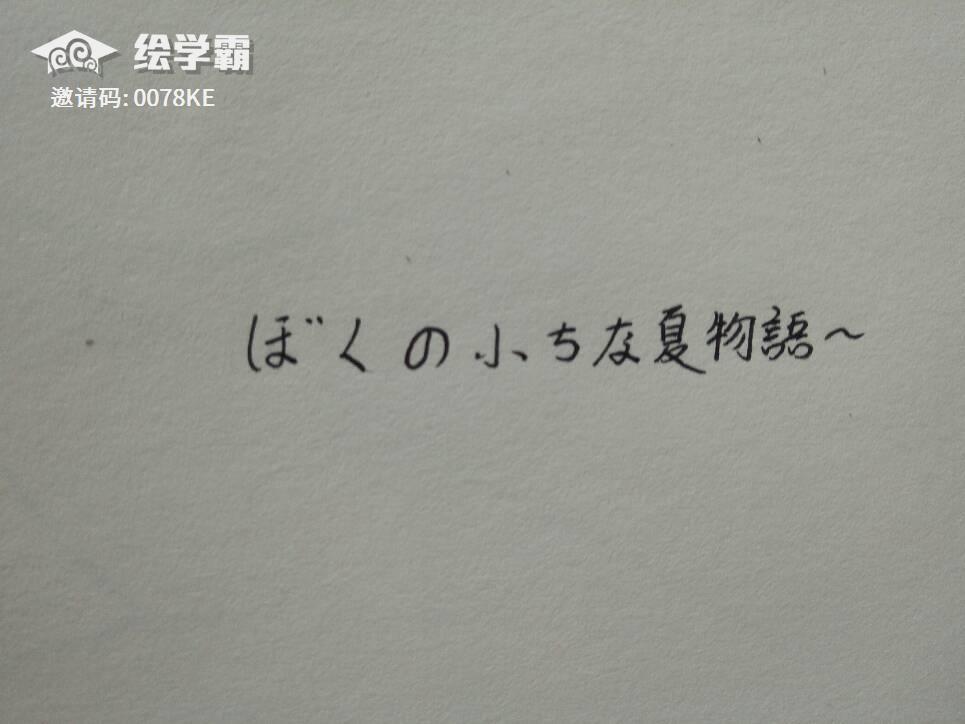 绘学霸
邀请码: 0078KE
ぼくの小ちな夏物語~